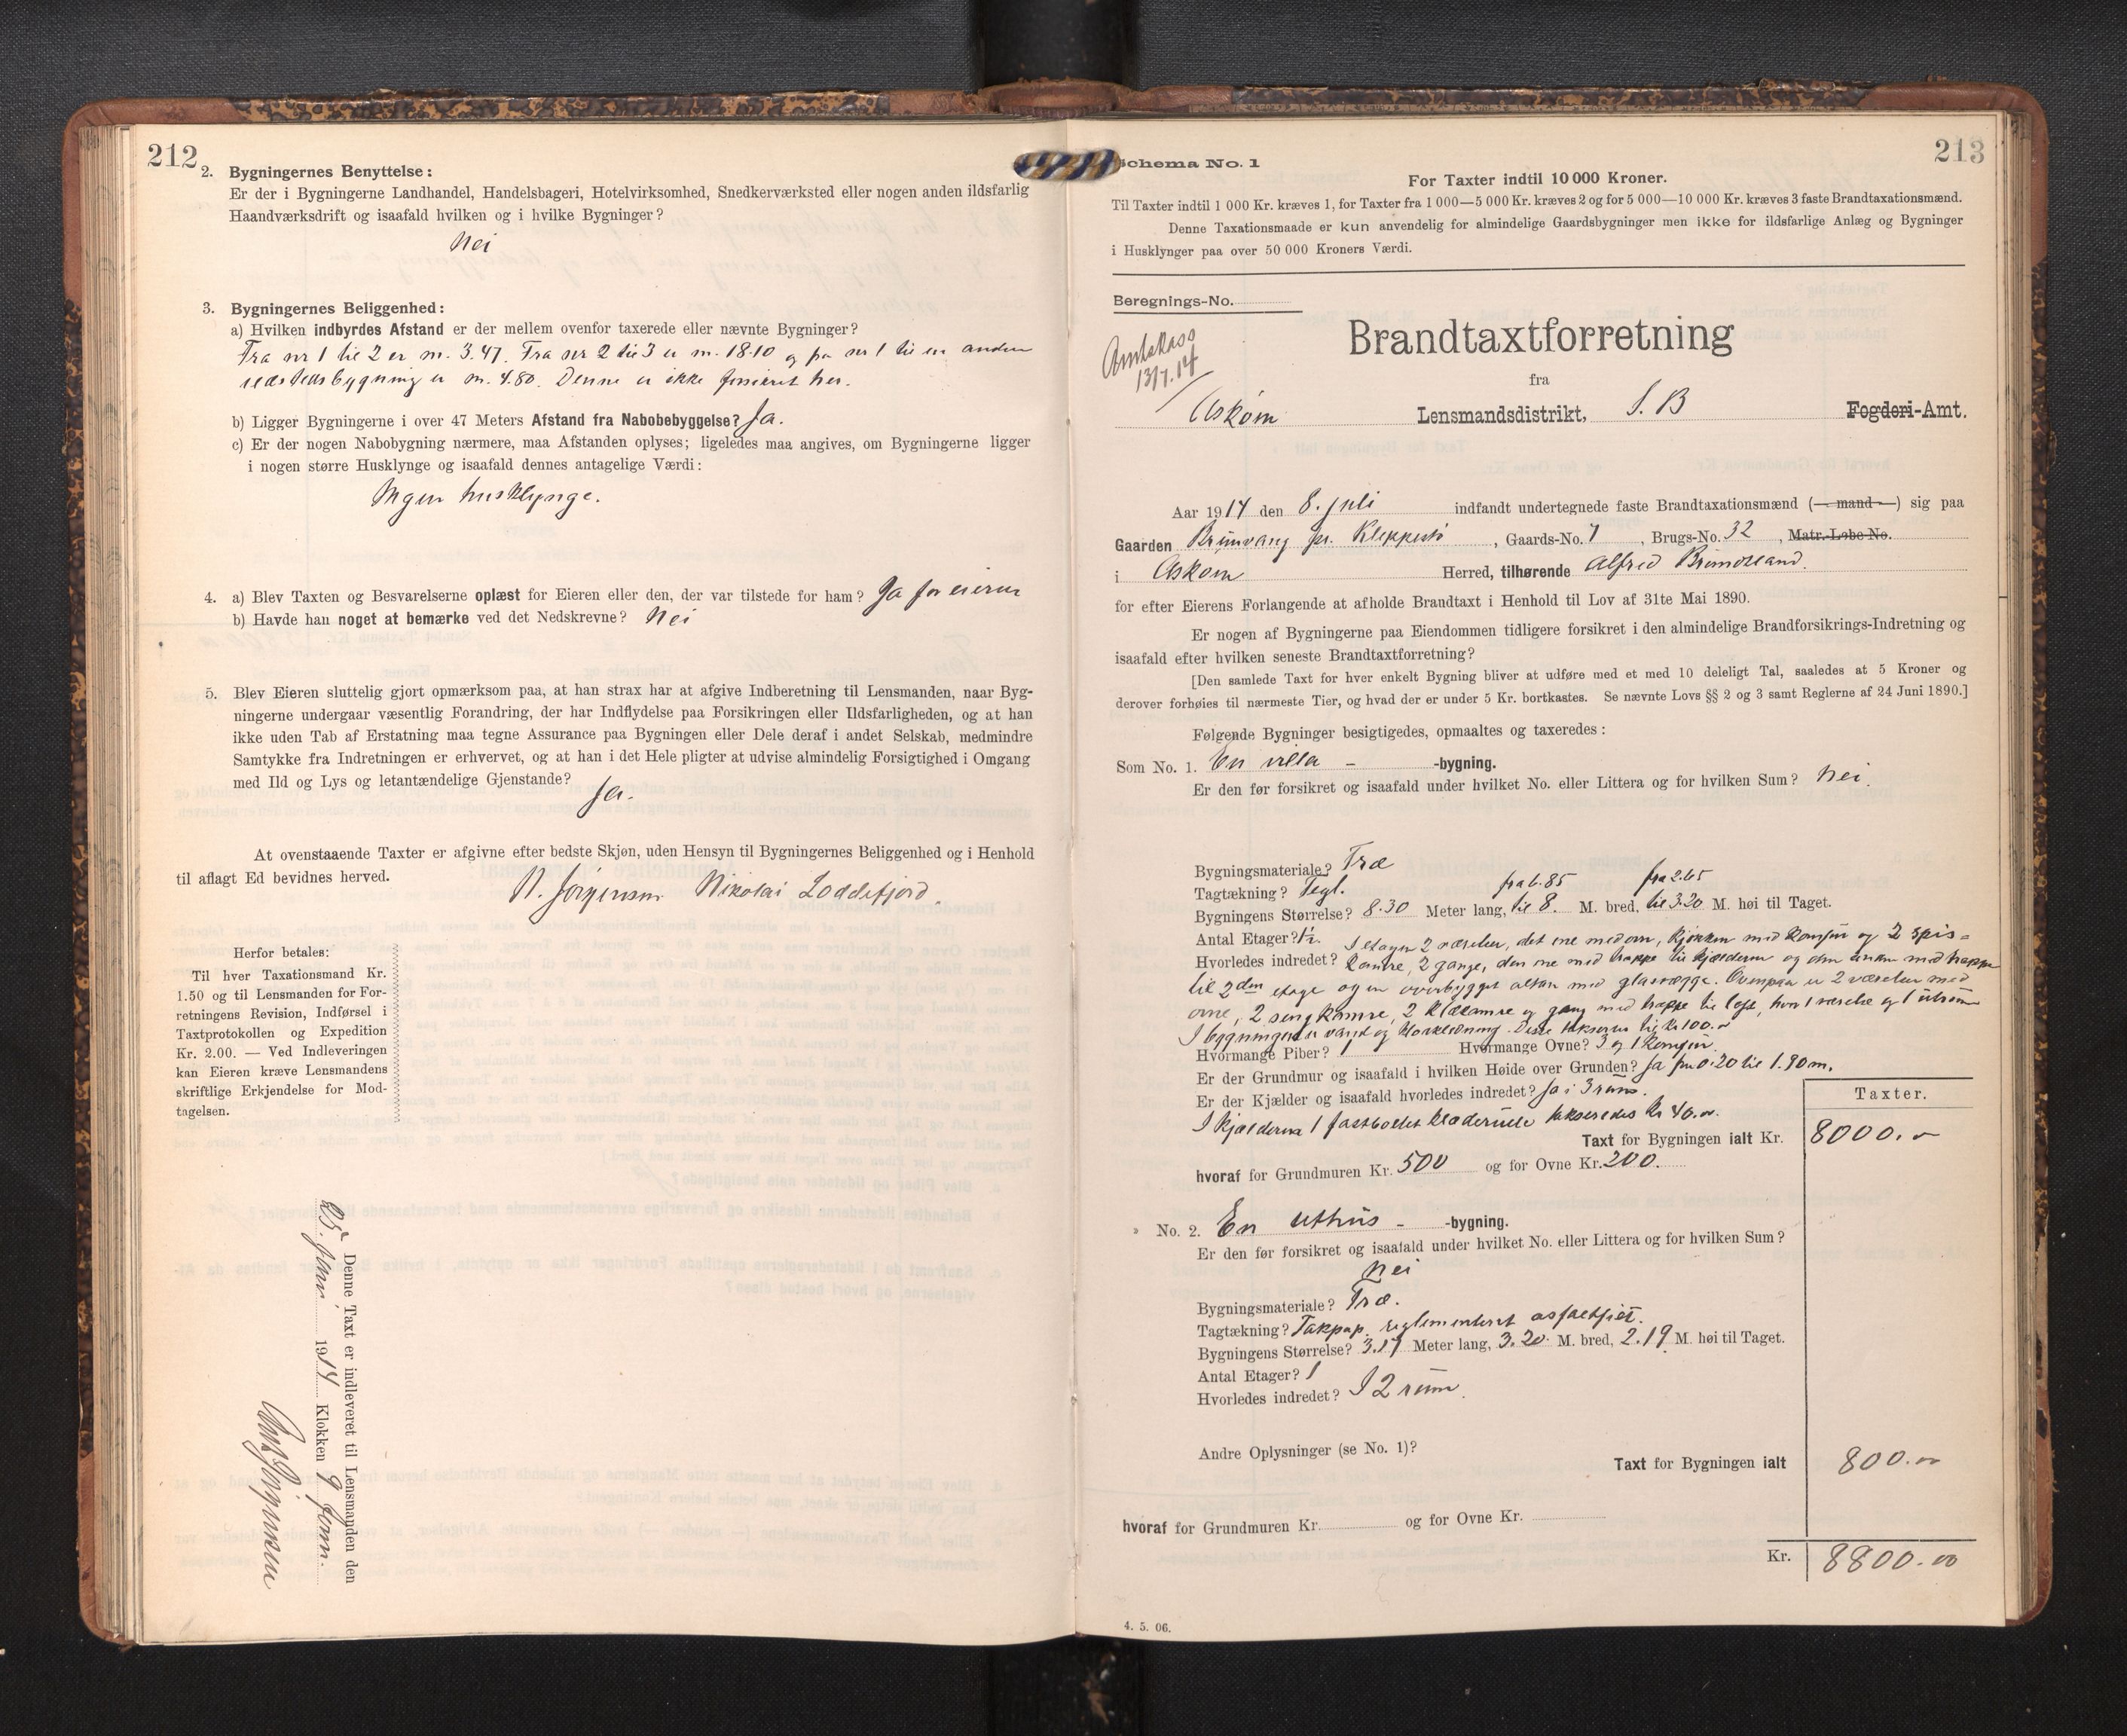 212
2. Bygningernes Benyttelse:
Er der i Bygningerne Landhandel, Handelsbageri, Hotelvirksomhed, Snedkerværksted eller nogen anden ildsfarlig
Haandværksdrift og isaafald hvilken og i hvilke Bygninger?
Nei
3. Bygningernes Beliggenhed:
a) Hvilken indbyrdes Afstand er der mellem ovenfor taxerede eller nævnte Bygninger?
Fra nr 1 til 2 er m. 3.47. Fra nr 2 til 3 er m. 18.10 og fra nr 1 til en anden
bygning er m. 4.80. Denne er ikke forsikret her.
b) Ligger Bygningerne i over 47 Meters Afstand fra Nabobebyggelse? Ja.
c) Er der nogen Nabobygning nærmere, maa Afstanden oplyses; ligeledes maa angives, om Bygningerne ligger
i nogen større Husklynge og isaafald dennes antagelige Værdi:
Ingen husklynge.
4. a) Blev Taxten og Besvarelserne oplæst for Eieren eller den, der var tilstede for ham? Ja for eieren
b) Havde han noget at bemærke ved det Nedskrevne? Nei
5. Blev Eieren sluttelig gjort opmærksom paa, at han strax har at afgive Indberetning til Lensmanden, naar Byg-
ningerne undergaar væsentlig Forandring, der har Indflydelse paa Forsikringen eller Ildsfarligheden, og at han
ikke uden Tab af Erstatning maa tegne Assurance paa Bygningen eller Dele deraf i andet Selskab, medmindre
Samtykke fra Indretningen er erhvervet, og at han i det Hele pligter at udvise almindelig Forsigtighed i Omgang
med Ild og Lys og letantændelige Gjenstande?
Ja.
At ovenstaaende Taxter er afgivne efter bedste Skjøn, uden Hensyn til Bygningernes Beliggenhed og i Henhold
til aflagt Ed bevidnes herved.
N. Jørgensen Nikolai Loddefjord.
Herfor betales:
Til hver Taxationsmand Kr.
1.50 og til Lensmanden for For-
retningens Revision, Indførsel i
Taxtprotokollen og Expedition
Kr. 2.00. — Ved Indleveringen
kan Eieren kræve Lensmandens
skriftlige Erkjendelse for Mod-
tagelsen.
Denne Taxt er indleveret til Lensmanden den
25. 1914 Klokken 9 form.
213
Schema No. 1
For Taxter indtil 10 000 Kroner.
Til Taxter indtil 1 000 Kr. kræves 1, for Taxter fra 1 000—5 000 Kr. kræves 2 og for 5 000—10 000 Kr. kræves 3 faste Brandtaxationsmænd.
Denne Taxationsmaade er kun anvendelig for almindelige Gaardsbygninger men ikke for ildsfarlige Anlæg og Bygninger
i Husklynger paa over 50 000 Kroners Værdi.
Beregnings-No.
13/7.14
Brandtaxtforretning
fra
Askøen Lensmandsdistrikt, S. B Fogderi-Amt.
Aar 1914 den 8. juli indfandt undertegnede faste Brandtaxationsmænd (— mand —) sig paa
Gaarden pr. Kleppestø, Gaards-No. 7, Brugs-No. 32, Matr.-Løbe-No.
i Askøen Herred, tilhørende Alfred
for efter Eierens Forlangende at afholde Brandtaxt i Henhold til Lov af 31te Mai 1890.
Er nogen af Bygningerne paa Eiendommen tidligere forsikret i den almindelige Brandforsikrings-Indretning og
isaafald efter hvilken seneste Brandtaxtforretning?
[Den samlede Taxt for hver enkelt Bygning bliver at udføre med et med 10 deleligt Tal, saaledes at 5 Kroner og
derover forhøies til nærmeste Tier, og hvad der er under 5 Kr. bortkastes. Se nævnte Lovs §§ 2 og 3 samt Reglerne af 24 Juni 1890.]
Følgende Bygninger besigtigedes, opmaaltes og taxeredes:
Som No. 1. En villa - -bygning.
Er den før forsikret og isaafald under hvilket No. eller Littera og for hvilken Sum? Nei.
Bygningsmateriale? Træ
Tagtækning? Tegl.
fra 6.85 fra 2.65
Bygningens Størrelse? 8.30 Meter lang, til 8. M. bred, til 3.20 M. høi til Taget.
Antal Etager? 1½. I etagen 2 værelser, det ene med ovn, kjøkken med komfur og 2 spis=
Hvorledes indredet? kamre, 2 gange, den ene med trappe til kjælderen og den anden med trappe
til 2den etage og en overbygget altan med glasvægge. Ovenpaa er 2 værelser med
ovne, 2 sengkamre, 2 klækamre og gang med trappe til loft, hvor 1 værelse og 1
I bygningen er vand og kloakledning. Disse takseres til kr 100.
Hvormange Piber? 1 Hvormange Ovne? 3 og 1 komfur.
Er der Grundmur og isaafald i hvilken Høide over Grunden? Ja fra 0.20 til 1.80 m.
Er der Kjælder og isaafald hvorledes indredet? Ja i 3 rum.
I kjælderen 1 fastbodet takseredes kr 40.
Taxter.
Taxt for Bygningen ialt Kr. 8000.-
hvoraf for Grundmuren Kr. 500 og for Ovne Kr. 200.
» No. 2. En uthus - -bygning.
Er den før forsikret og isaafald under hvilket No. eller Littera og for hvilken Sum?
Nei
Bygningsmateriale? Træ.
Tagtækning? Takpap, reglementeret asfaltfilt.
Bygningens Størrelse? 3.17 Meter lang, 3.20 M. bred, 2.19 M. høi til Taget.
Antal Etager? 1
Hvorledes indredet? I 2 rum.
Andre Oplysninger (se No. 1)?
Taxt for Bygningen ialt 800.00
hvoraf for Grundmuren Kr. og for Ovne Kr.
Kr. 8800.00
4. 5. 06.